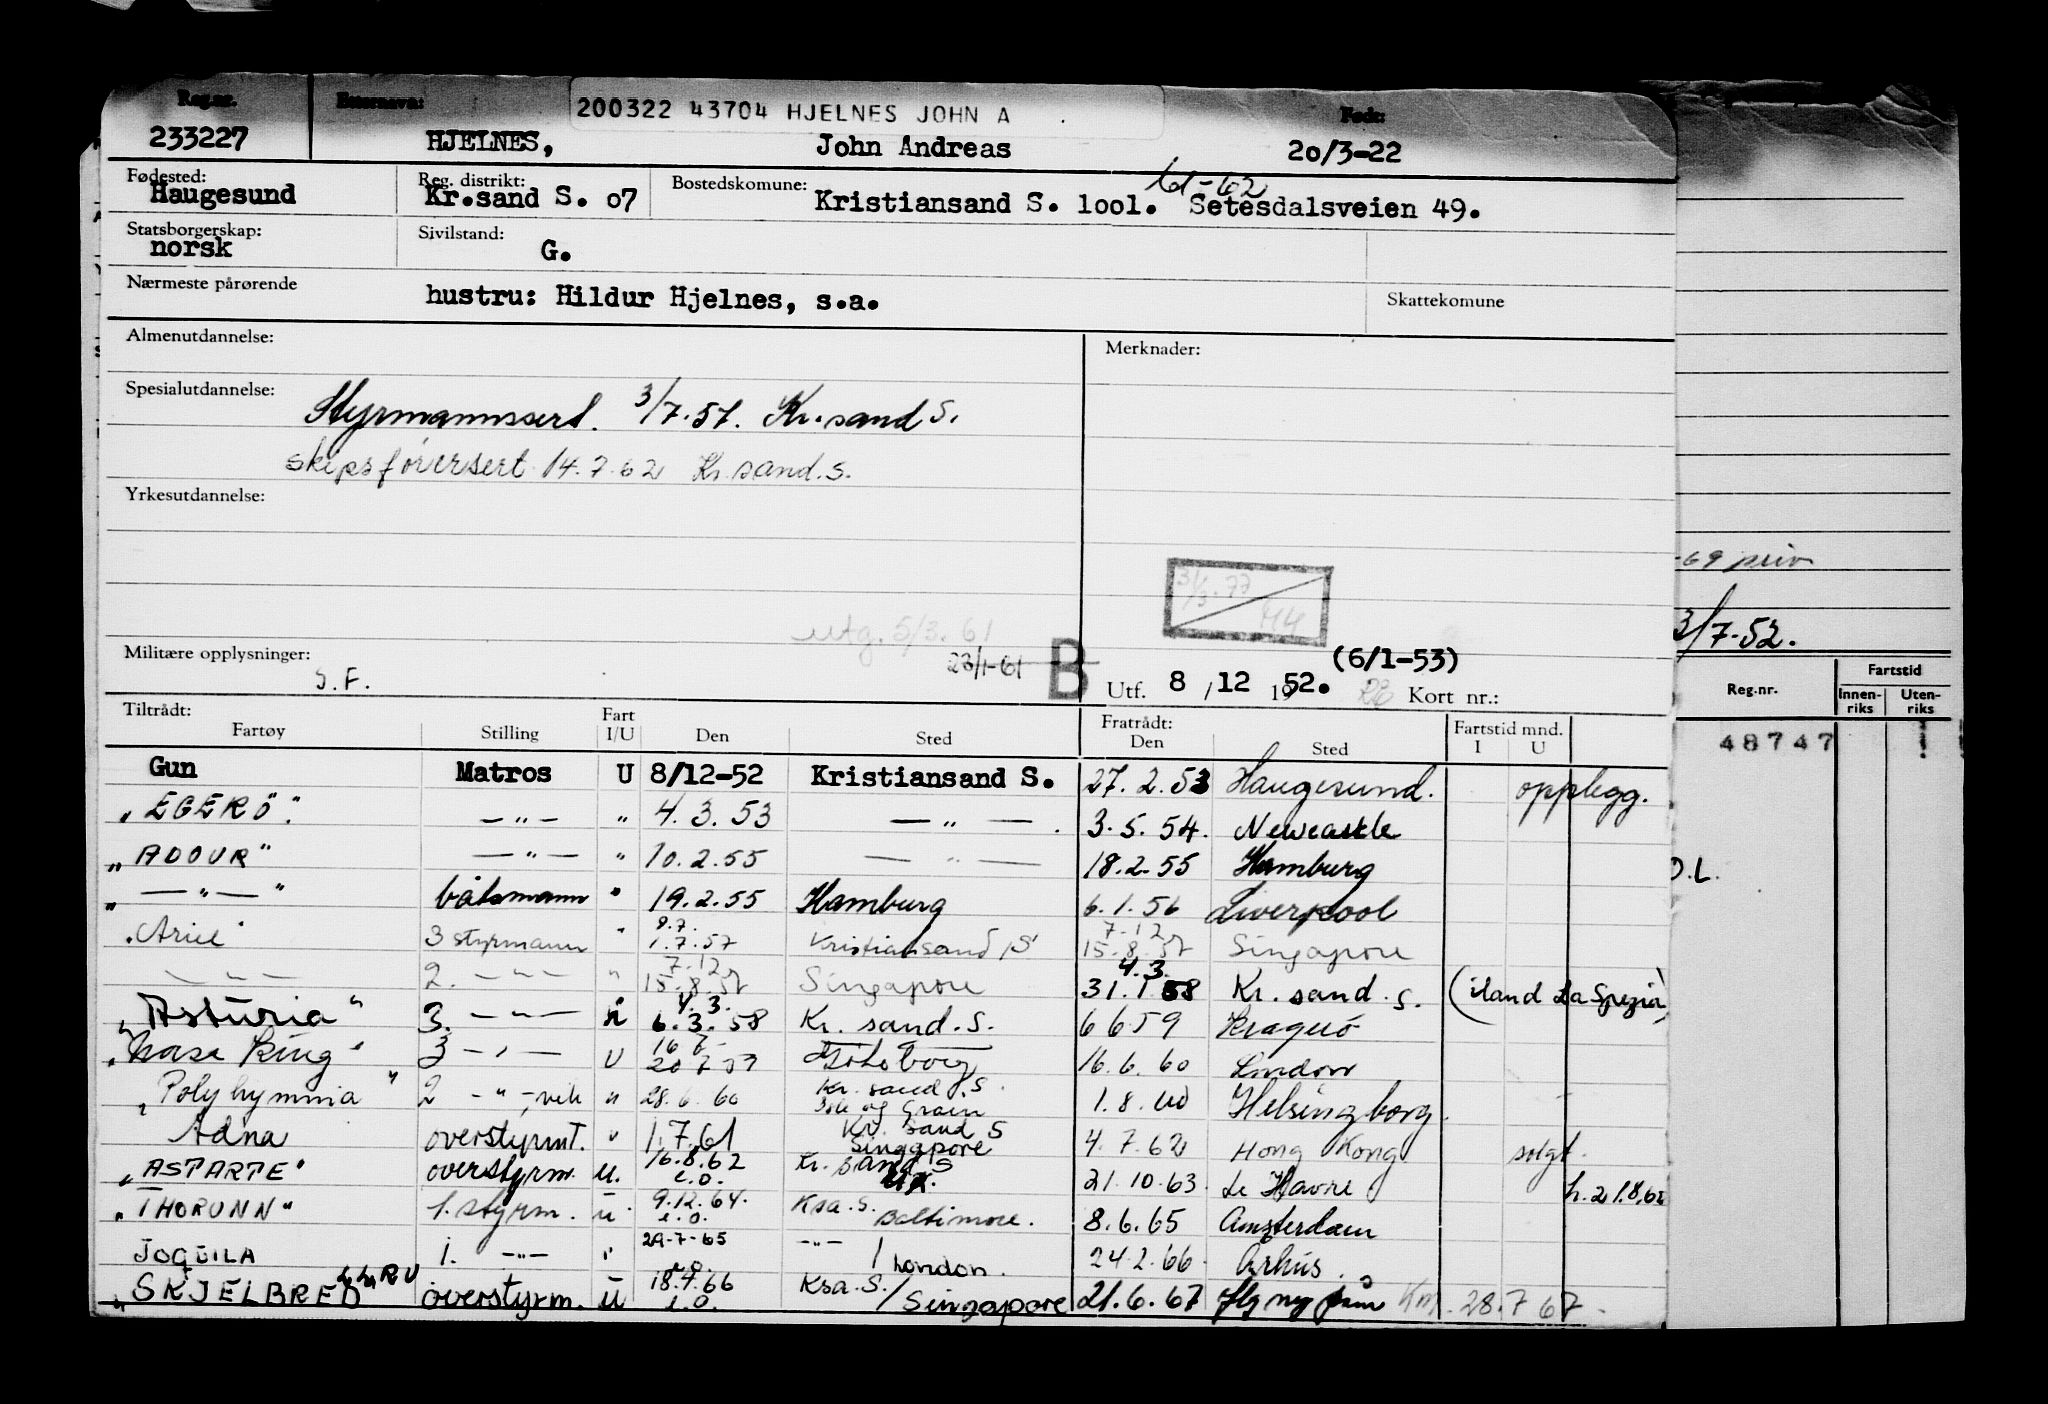 Reg.nr. Etternavn: 200322 43704 HJELNES JOHN A Født:
233227 HJELNES, John Andreas 20/3-22
Fødested: Reg. distrikt: Bostedskomune: 61-62
Haugesund Kr.sand S. 07 Kristiansand S. 1001. Setesdalsveien 49.
Statsborgerskap: Sivilstand:
norsk G.
Nærmeste pårørende hustru: Hildur Hjelnes, s.a. Skattekomune
Almenutdannelse: Merknader:
Spesialutdannelse: Styrmannssert. 3/7.57. Kr.sand S.
skipsførersert 14.7.62 Kr.sand.s.
Yrkesutdannelse:
-69 priv
3/3.77
H4
utg. 5/3.61
3/7-52.
Militære opplysninger: S.F. 23/1-61 B (6/1-53)
Utf. 8 / 12 1952. Kort nr.:
Reg.nr. Fartstid
Innenriks Utenriks
Tiltrådt: Fart Fratrådt: Fartstid mnd.
Fartøy Stilling I/U Den Sted Den Sted I U
48747
Gun Matros U 8/12-52 Kristiansand S. 27.2.53 Haugesund. opplegg.
"EGERÖ" —"— " 4.3.53 —"— 3.5.54. Newcastle
"ADOUR" —"— " 10.2.55 —"— 18.2.55 Hamburg
O.L.
"—"—" båtsmann " 19.2.55 Hamburg 6.1.56 Liverpool
"Ariel" 3 styrmann " 8.7. 1.7.57 Kristiansand S 7.12 15.8.57 Singapore
—"— 2. —"— " 7.12 15.8.57 Singapore 4.3. 31.1.58 Kr.sand.s. (iland La Spezia)
"Asturia" 3. —"— 4.3. 6.3.58 Kr. sand.S. 6 6 59 Kragerö
King" 3 —"— U 16 7 Göteborg 16.6.60 London
"Polyhymnia" 2 —"— " 28.6.60 Kr. sand S. Isle of Grain 1.8.60 Helsingborg.
Adna overstyrmt. " 1.7.61 Kr. sand S Singapore 4.7.62 Hong Kong solgt.
"ASTARTE" overstyrm. u. 16.8.62 i.o. Kr. sand S 21.10.63. Le Havre
"THORUNN" 1. styrm. u 9.12.64. i.o. Ksa.S. Baltimore. 8.6.65 Amsterdam
JOQUILA 1. —"— " 29-7-65 —"— / London. 24.2.66. Århus.
"SKJELBRED" overstyrm. u 18.4.66 i.o. Ksa.S. / Singapore 21.6.67 28.7 67.